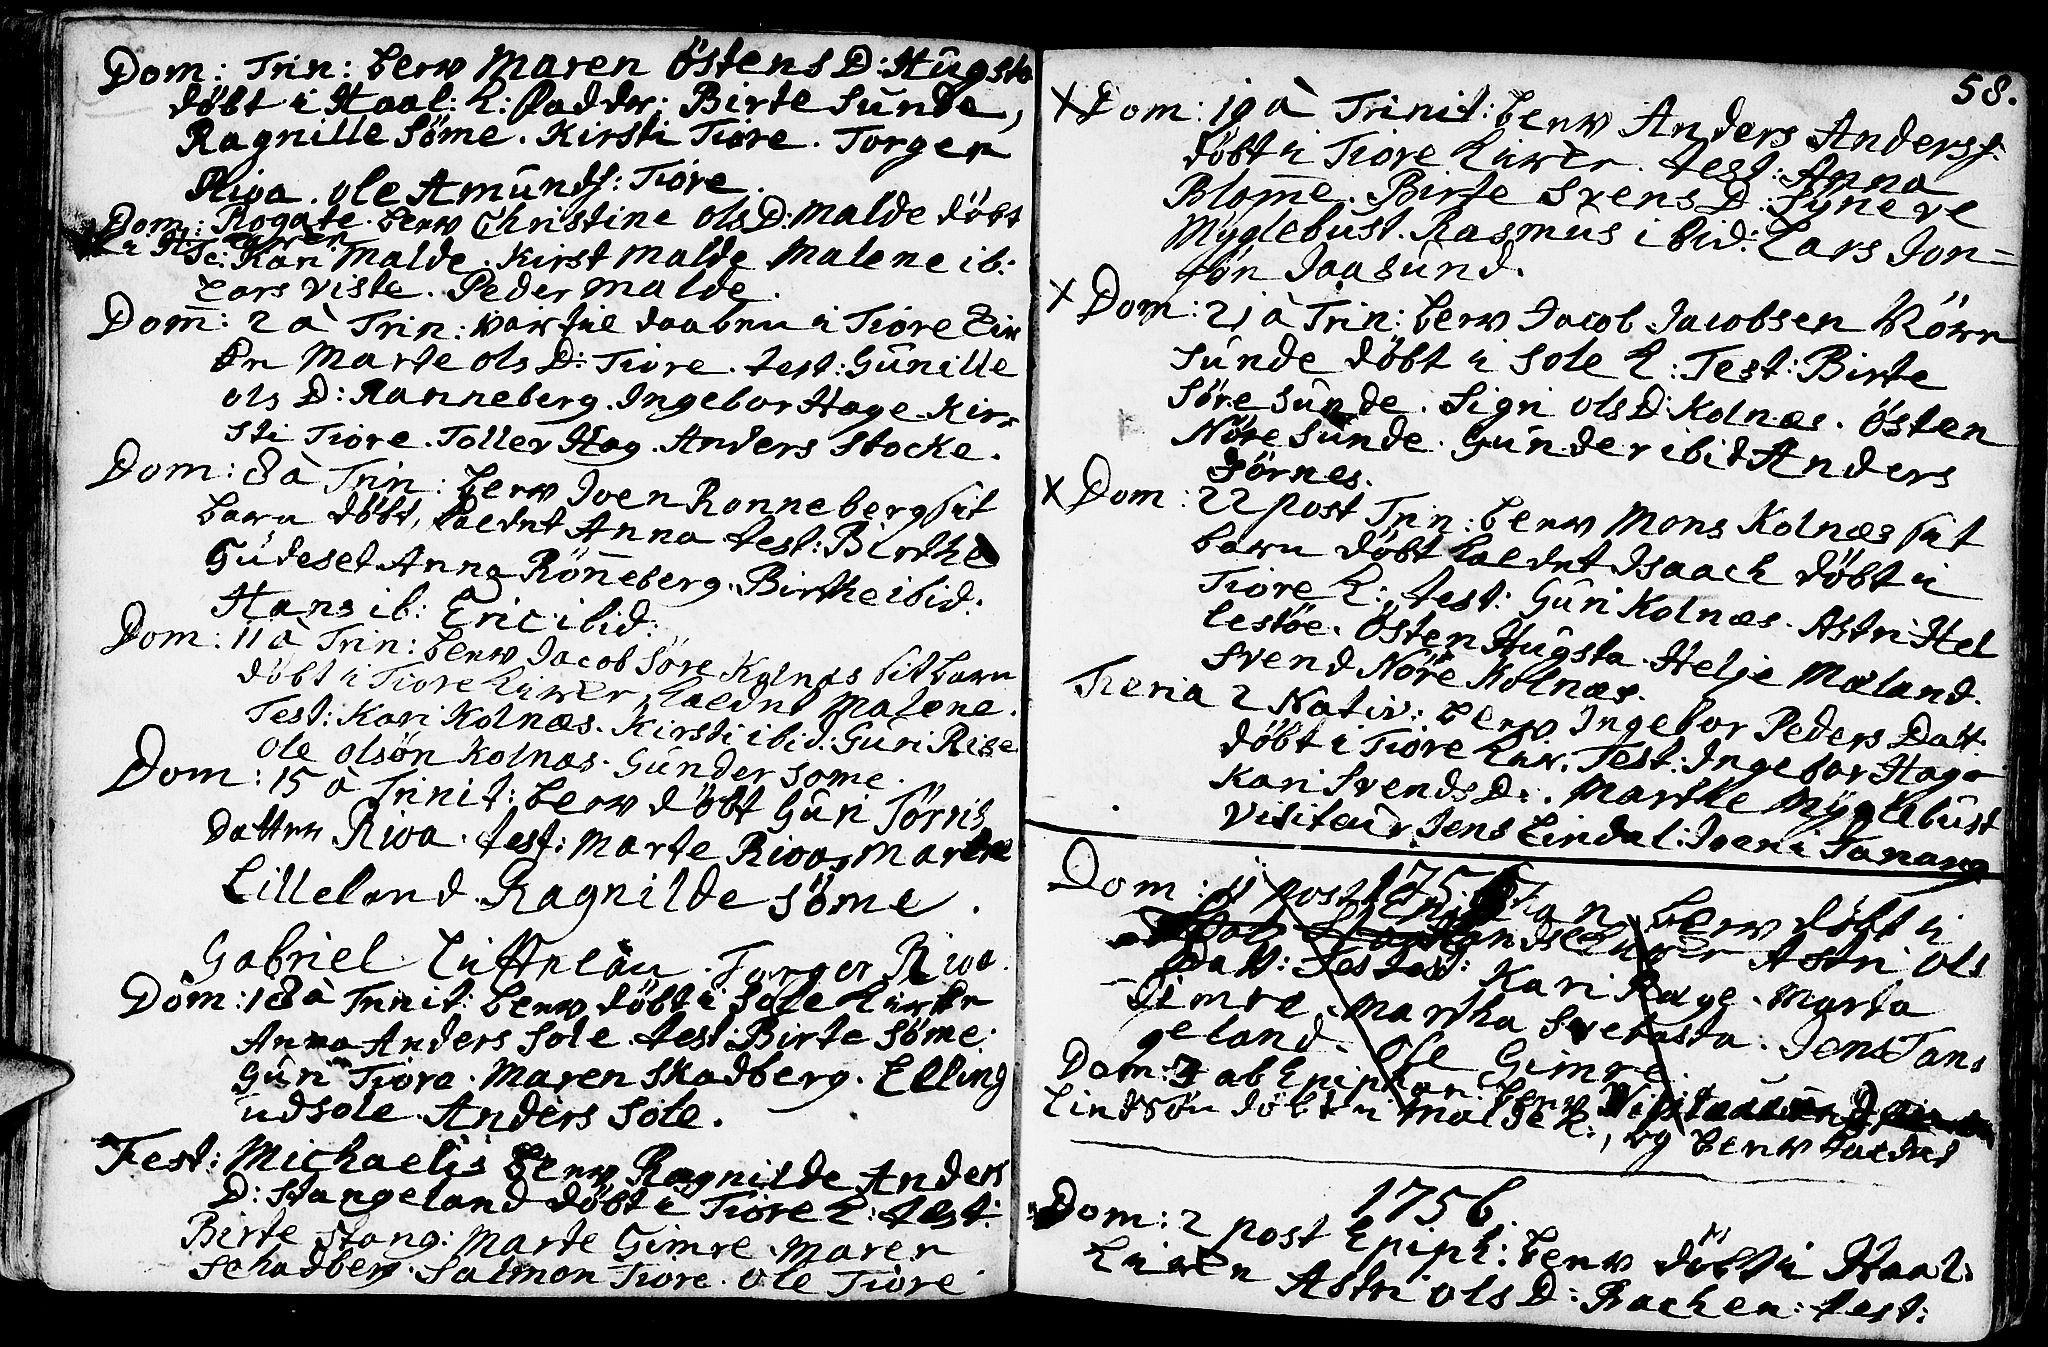 Dom: Trin: blew Maren Östens D: Hugsta
döbt i Haal: k: fadder: Birte Sunde,
Ragnille Söme. Kirsti Tiore. Torger
Riwa. ole Amunds: Tiore.
Dom: Rogate blew Christine ols D: Malde döbt
i H: Te: Kari Malde. Kirst Malde Malene ib:
Lars Viste. Peder Malde.
Dom: 2 a Trin: war til daaben i Tiore Kir
ken Marte ols D: Tiore. test: Gunille
ols D: Ranneberg. Ingebor Hage. Kir-
sti Tiore. Toller Hag. Anders Stocke.
Dom: 8 à Trin: blew Joen Ronneberg sit
barn döbt, kaldet Anna test: Birthe
Gudeset Anna Röneberg. Birthe ibid.
Hans ib: Eric ibid:
Dom: 11 à Trin: blew Jacob Söre Kolnæs sit barn
döbt i Tiore kirker, kaldet Malene.
Test: Kari Kolnæs. Kirsti ibid: Guri Rise
ole olsön Kolnæs. Gunder Some.
Dom: 15 à Trinit: blew döbt Guri Törris
datter Riwa. test: Marte Riwa, Marthe
Lilleland. Ragnilde Söme.
Gabriel. Torger Riwa.
Dom: 18 à Trinit: blew döbt i Sole kirken
Anna Anders Sole. test: Birte Söme.
Guri Tiore. Maren Skadberg. Elling
udsole. Anders Sole.
Fest: Michaelis blew Ragnilde Anders
D: Stangeland döbt i Tiore k: test:
Birte Stang: Marte Gimre. Maren
Schadberg. Salmon Tiore. ole Tiore
58.
X Dom: 19 à Trinit: blew Anders Anderss:
döbt i Tiore kirker. test: Anna
Blome. Birte Svens D: Syneve
Myglebust. Rasmus ibid: Lars Jon=
sön Jaasund.
X Dom: 21 à Trin: blew Jacob Jacobsen
Sunde döbt i Sole k: Test: Birte
Söre Sunde. Sigri ols D: Kolnæs. Östen
Nöre Sunde. Gunder ibid Anders
Sörnes.
X Dom: 22 post Trin: blew Mons Kolnæs sit
barn döbt kaldet Isaach döbt i
Tiore k: test: Guri Kolnæs. Astri Hel
lestöe. Östen Hugsta. Helje Mæland.
Svend Nöre Kolnæs.
Feria 2 Nativ: blew Ingebor Peders Datt:
döbt i Tiore kirk. Test: Ingebor Hage
Kari Svends D:. Marthe Myglebust
Visiteur Jens Lindal: Joen i Tananger
1756
Dom: post blew döbt i
Astri ols
Datt: test: Kari Rage. Marta
Gimre. Martha. Jens Tans
geland. Ole Gimre.
Dom: 3 ab Epiphan: blew
döbt i Malde k:, og blew kaldet
1756
Dom: 2 post Epiph: blew döbt i Haal:
kirken Astri ols D: Rachen: test: